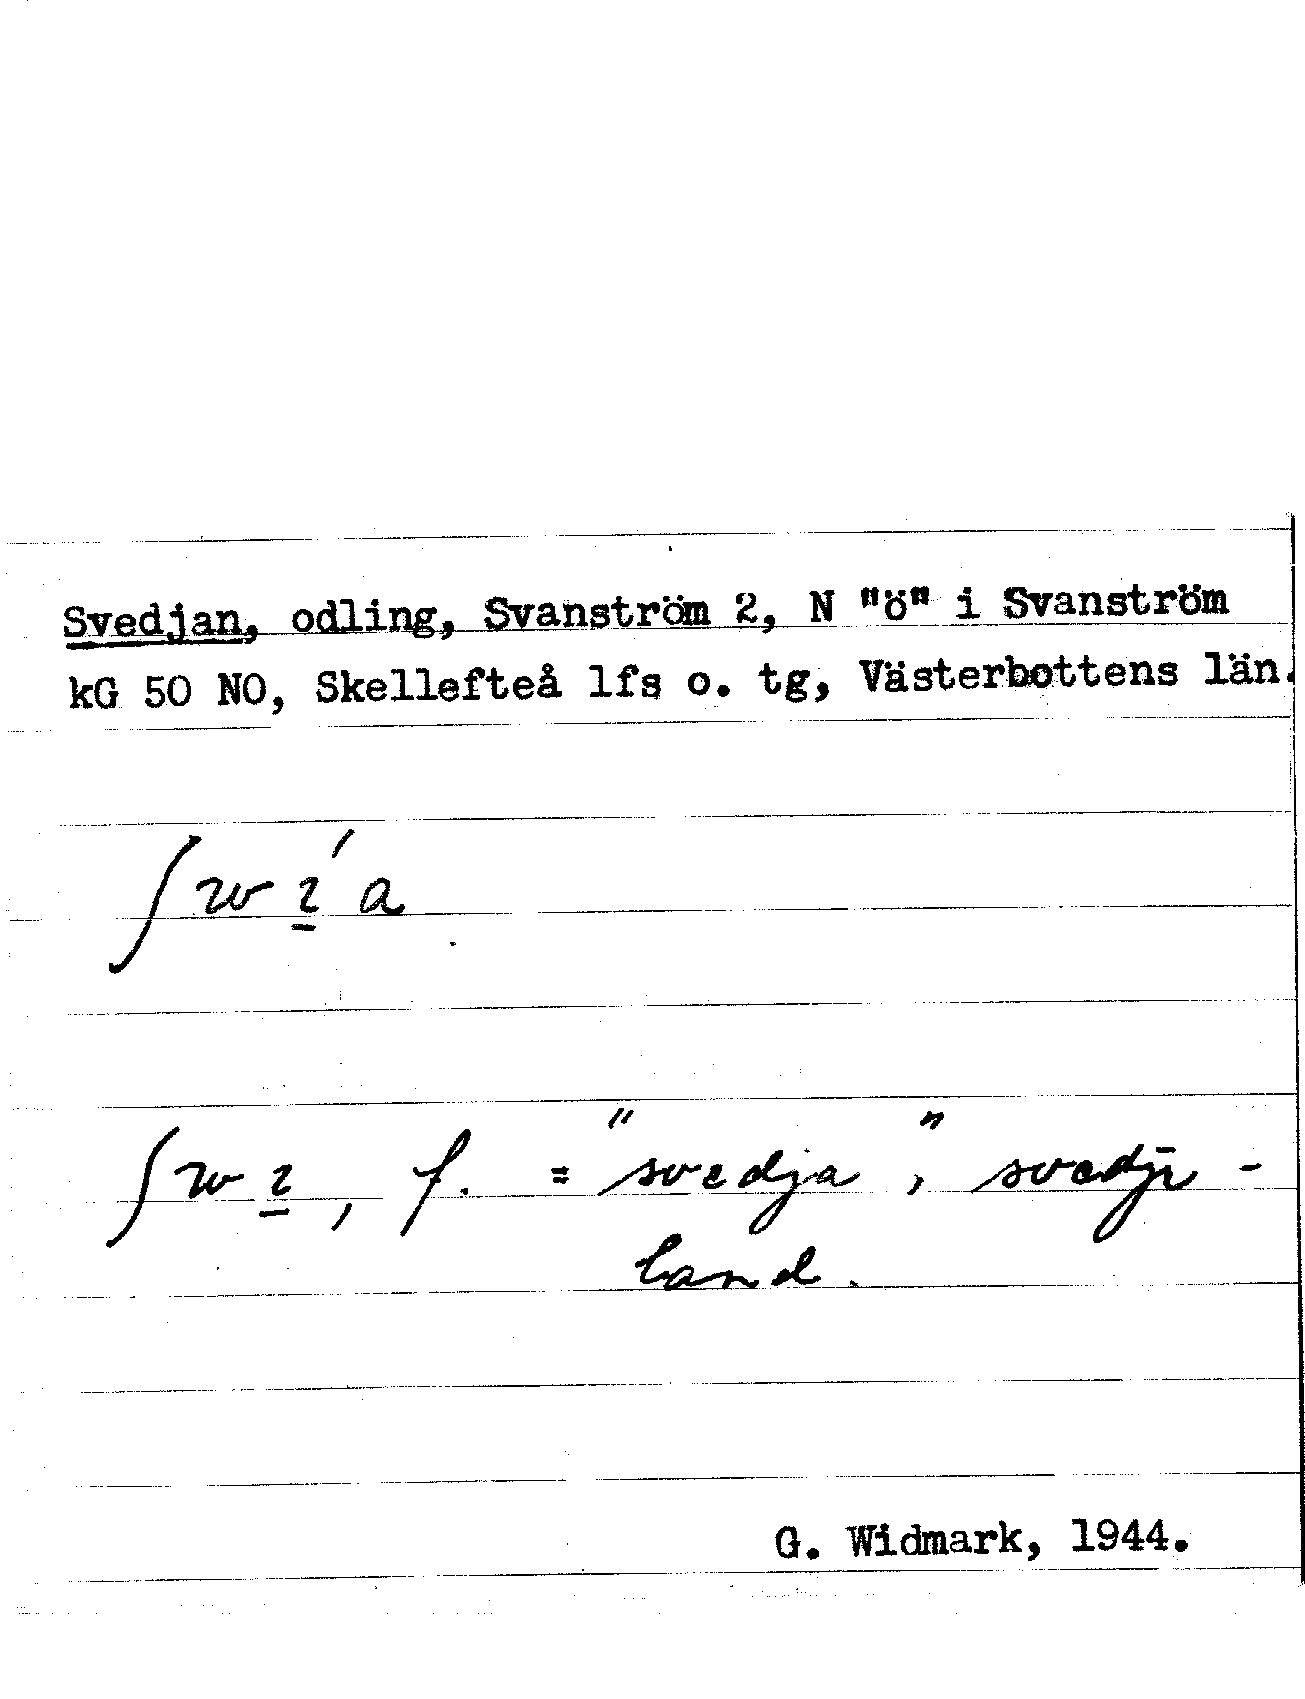 Svedjan, odling, Svanström 2, N "ö" i Svanström
kG 50 NO, Skellefteå lfs o. tg, Västerbottens län.
ʃwɩ̱́a
ʃwɩ̱, f. = "svedja", svedje-
land.
G. Widmark, 1944.